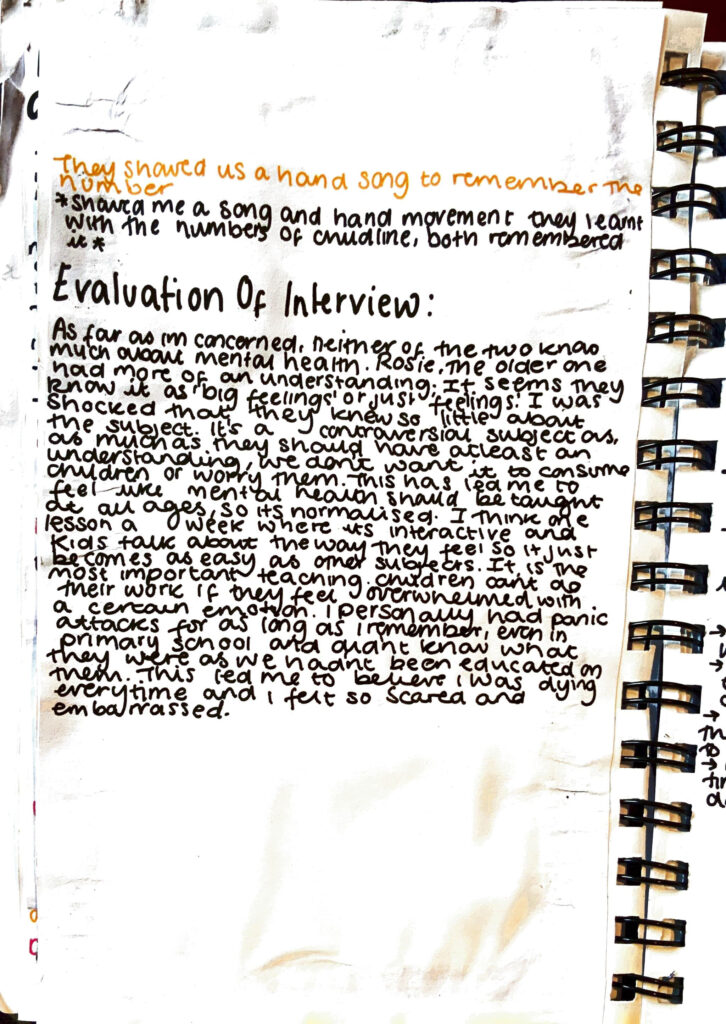 They showed us a hand song to remember the
number
*showed me a song and hand movement they learnt
with the numbers of childline, both remembered
it*
Evaluation Of Interview:
As far as im concerned, neither of the two know
much about mental health. Rosie, the older one
had more of an understanding. It seems they
know it as 'big feelings' or just 'feelings'. I was
shocked that they knew so little about
the subject. It's a controversial subject as,
as much as they should have atleast an
understanding, we dont want it to consume
children or worry them. This has led me to
feel like mental health should be taught
at all ages, so its normalised. I think one
lesson a week where its interactive and
kids talk about the way they feel so it just
becomes as easy as other subjects. It is the
most important teaching. Children cant do
their work if they feel overwhelmed with
a certain emotion. I personally had panic
attacks for as long as I remember, even in
primary school and didnt know what
they were as we hadnt been educated on
them. This led me to believe i was dying
everytime and i felt so scared and
embarrassed.